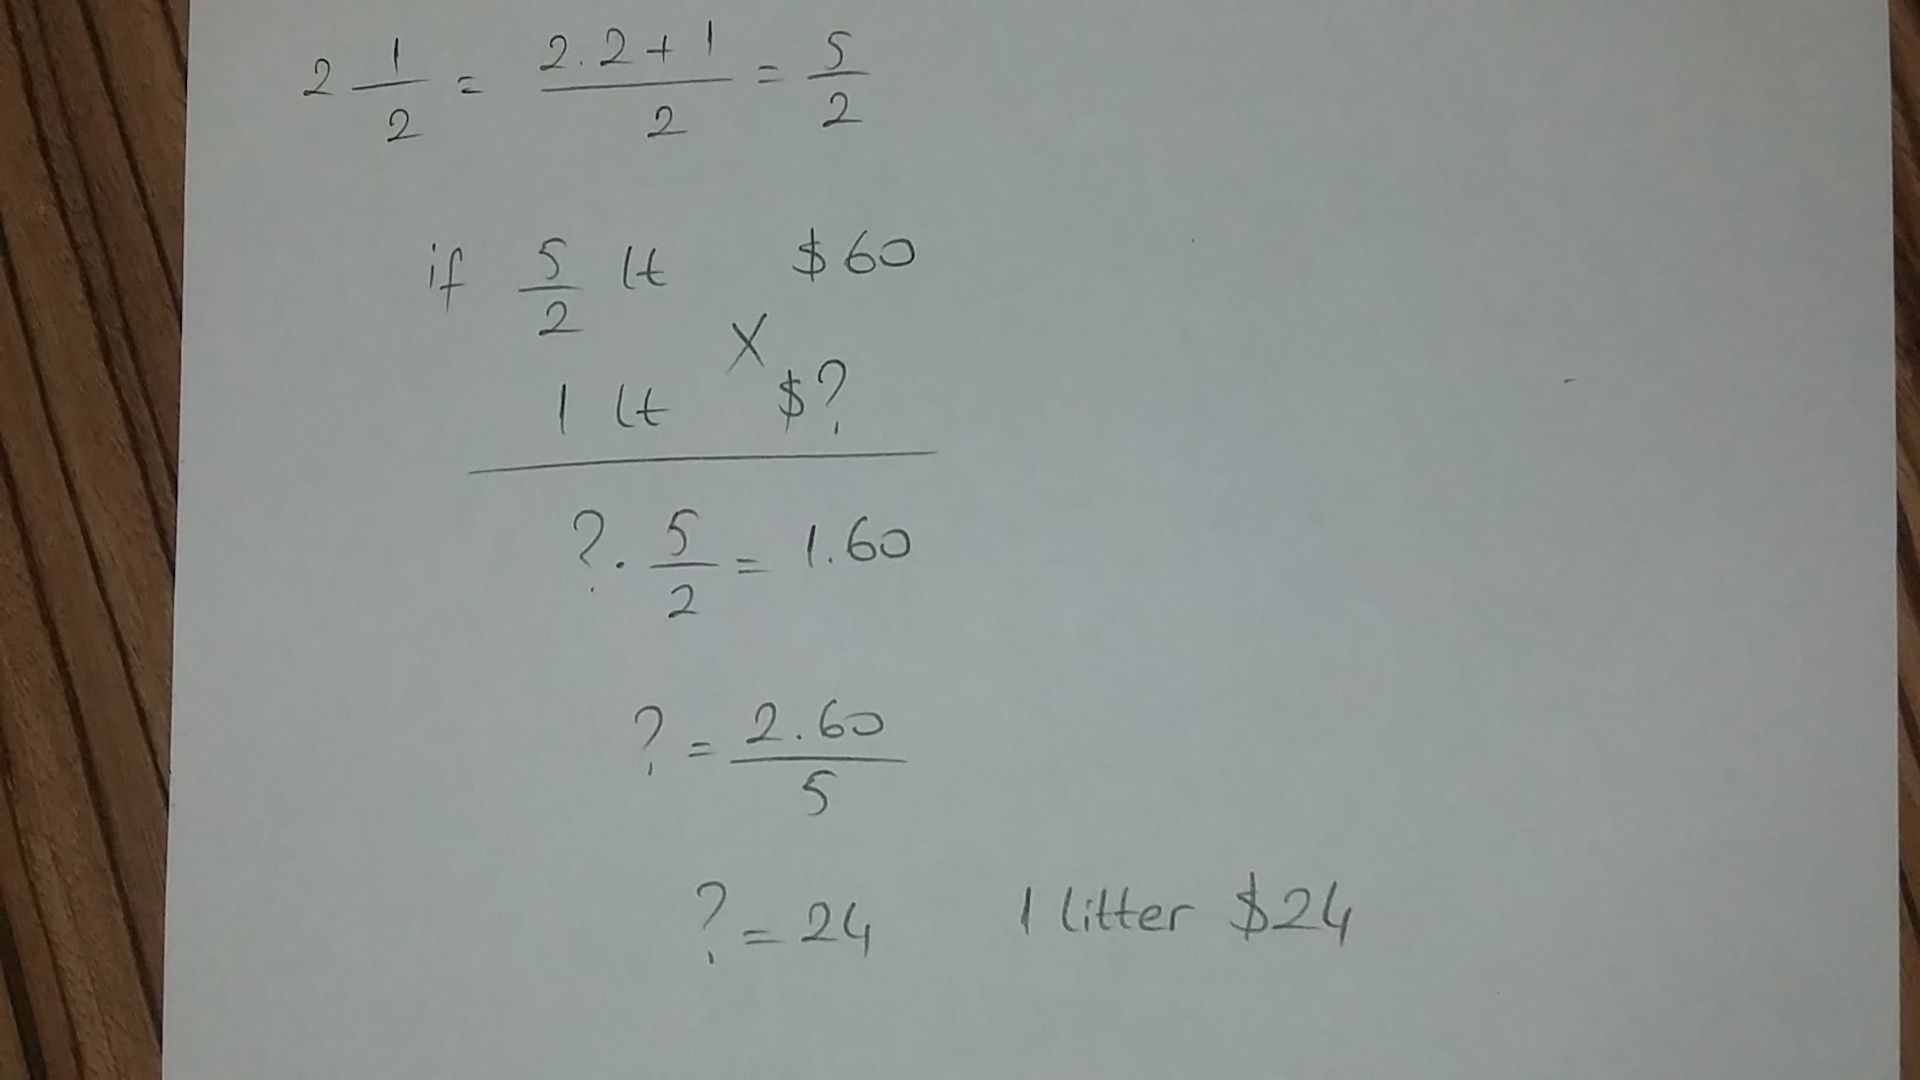 2 1/2 = 2.2+1/2 = 5/2
if 5/2 lt $60
X
1 lt $?
?. 5/2 = 1.60
? = 2.60/5
? = 24 1 litter $24